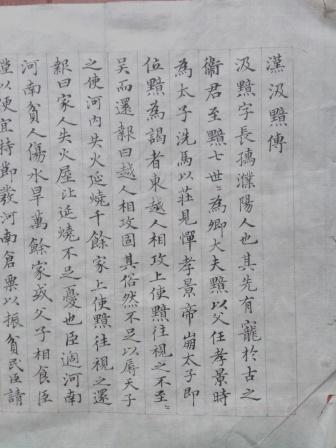 漢汲黯傳
汲黯字長孺濮陽人也其先有寵於古之
衞君至黯七世〻為卿大夫黯以父任孝景時
為太子洗馬以莊見憚孝景帝崩太子即
位黯為謁者東越人相攻上使黯往視之不至〻
吳而還報曰越人相攻固其俗然不足以辱天子
之使河内失火延燒千餘家上使黯往視之還
報曰家人失火屋比延燒不足憂也臣過河南
河南貧人傷水旱萬餘家或父子相食臣
謹以便宜持節發河南倉粟以振貧民臣請